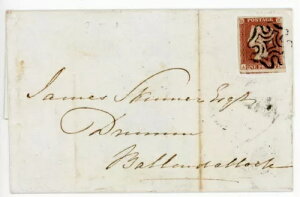 POSTAGE
James Skinner Esqr
Drumin
Ballendalloch